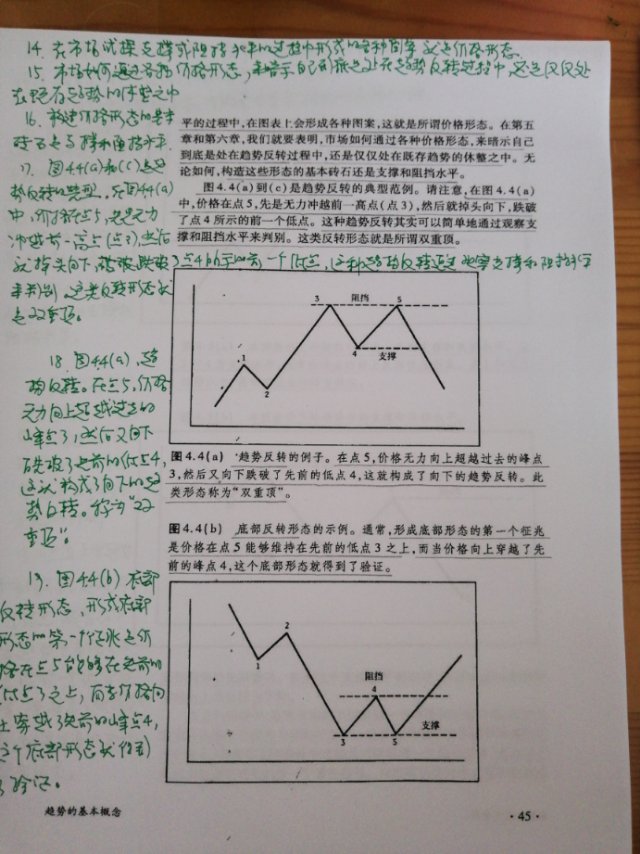 14. 在市场试探支撑或阻挡水平的过程中形成的各种图案就是价格形态。
15. 市场如何通过各种价格形态,来暗示自己到底是处在趋势反转过程中,还是仅仅处
在既有趋势的休整之中
16. 构造价格形态的基本
砖石是支撑和阻挡水平.
平的过程中,在图表上会形成各种图案,这就是所谓价格形态。在第五
章和第六章,我们就要表明,市场如何通过各种价格形态,来暗示自己
到底是处在趋势反转过程中,还是仅仅处在既存趋势的休整之中。无
论如何,构造这些形态的基本砖石还是支撑和阻挡水平。
图4.4(a)到(c)是趋势反转的典型范例。请注意,在图4.4(a)
中,价格在点5,先是无力冲越前一高点(点3),然后就掉头向下,跌破
了点4所示的前一个低点。这种趋势反转其实可以简单地通过观察支
撑和阻挡水平来判别。这类反转形态就是所谓双重顶。
17. 图4.4(a)和(c)是趋
势反转的典型,在图4.4(a)
中,价格在点5,先是无力
冲越前一高点(点3),然后
就掉头向下,跌破了点4所示的前一个低点,这种趋势反转通过观察支撑和阻挡水平
来判别,这类反转形态就
是双重顶。
3
阻挡
5
1
4
支撑
2
18. 图4.4(a),趋
势反转。在点5,价格
无力向上超越过去的
峰点3,然后又向下
跌破了先前的低点4,
这就构成了向下的趋
势反转。称为“双
重顶”。
图4.4(a) 趋势反转的例子。在点5,价格无力向上超越过去的峰点
3,然后又向下跌破了先前的低点4,这就构成了向下的趋势反转。此
类形态称为“双重顶”。
图4.4(b) 底部反转形态的示例。通常,形成底部形态的第一个征兆
是价格在点5能够维持在先前的低点3之上,而当价格向上穿越了先
前的峰点4,这个底部形态就得到了验证。
19. 图4.4(b) 底部
反转形态,形成底部
形态的第一个征兆是价
格在点5能够在先前的
低点3之上,而当价格向
上穿越了先前的峰点4,
这个底部形态就得到
了验证。
2
1
阻挡
4
支撑
3
5
趋势的基本概念
· 45 ·